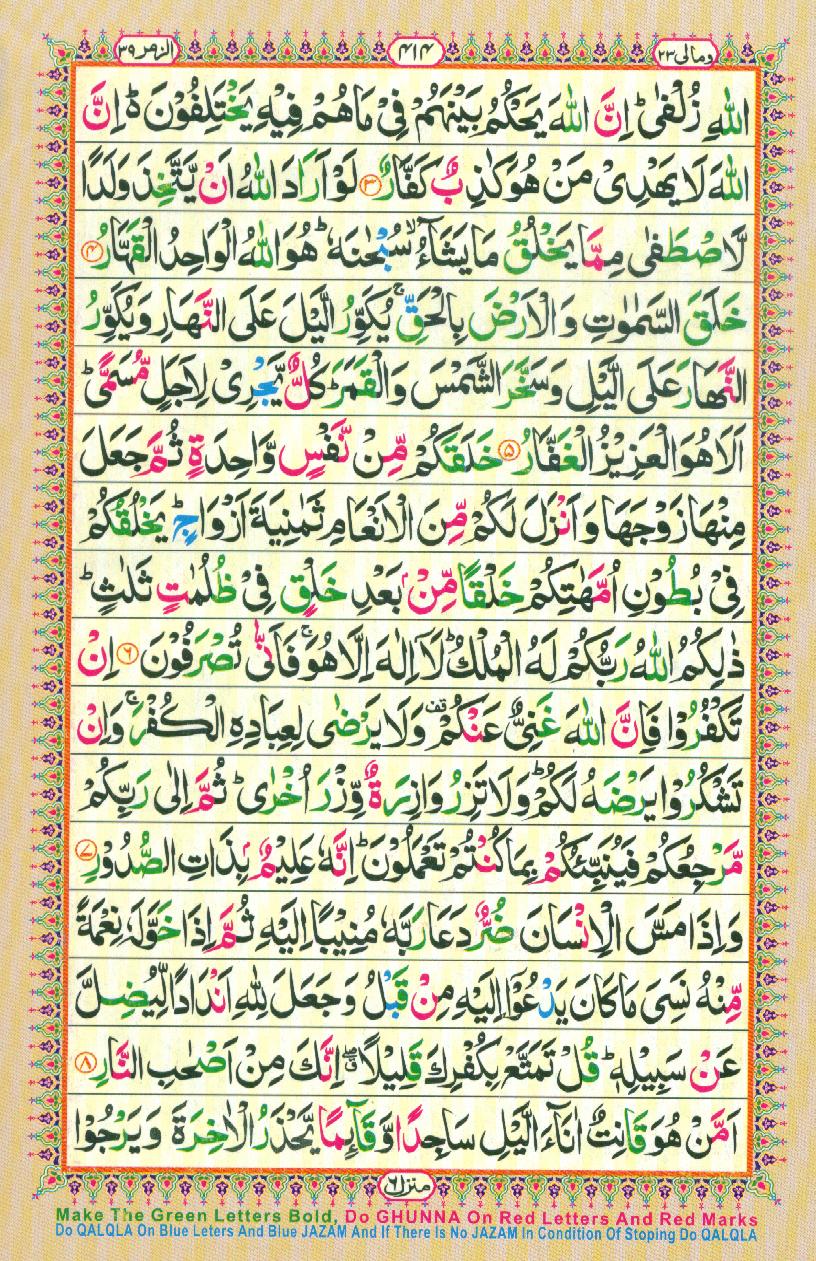 الزمر ٣٩
٤١٤
ومالی ٢٣
اللّٰهِ زُلْفٰىؕ اِنَّ اللّٰهَ يَحْكُمُ بَيْنَهُمْ فِىْ مَا هُمْ فِيْهِ يَخْتَلِفُوْنَ ؕ۬ اِنَّ
اللّٰهَ لَا يَهْدِىْ مَنْ هُوَ كٰذِبٌ كَفَّارٌ ﴿۳﴾ لَوْ اَرَادَ اللّٰهُ اَنْ يَّتَّخِذَ وَلَدًا
لَّاصْطَفٰى مِمَّا يَخْلُقُ مَا يَشَآءُ ۙ سُبْحٰنَهٗ ؕ هُوَ اللّٰهُ الْوَاحِدُ الْقَهَّارُ ﴿۴﴾
خَلَقَ السَّمٰوٰتِ وَالْاَرْضَ بِالْحَقِّ ۚ يُكَوِّرُ الَّيْلَ عَلَى النَّهَارِ وَيُكَوِّرُ
النَّهَارَ عَلَى الَّيْلِ وَسَخَّرَ الشَّمْسَ وَالْقَمَرَ ؕ كُلٌّ يَّجْرِىْ لِاَجَلٍ مُّسَمًّى ؕ
اَلَا هُوَ الْعَزِيْزُ الْغَفَّارُ ﴿۵﴾ خَلَقَكُمْ مِّنْ نَّفْسٍ وَّاحِدَةٍ ثُمَّ جَعَلَ
مِنْهَا زَوْجَهَا وَاَنْزَلَ لَكُمْ مِّنَ الْاَنْعَامِ ثَمٰنِيَةَ اَزْوَاجٍ ؕ يَخْلُقُكُمْ
فِىْ بُطُوْنِ اُمَّهٰتِكُمْ خَلْقًا مِّنْۢ بَعْدِ خَلْقٍ فِىْ ظُلُمٰتٍ ثَلٰثٍ ؕ
ذٰلِكُمُ اللّٰهُ رَبُّكُمْ لَهُ الْمُلْكُ ؕ لَاۤ اِلٰهَ اِلَّا هُوَ ۚ فَاَنّٰى تُصْرَفُوْنَ ﴿۶﴾ اِنْ
تَكْفُرُوْا فَاِنَّ اللّٰهَ غَنِىٌّ عَنْكُمْ ۟ وَلَا يَرْضٰى لِعِبَادِهِ الْكُفْرَ ۚ وَاِنْ
تَشْكُرُوْا يَرْضَهُ لَكُمْ ؕ وَلَا تَزِرُ وَازِرَةٌ وِّزْرَ اُخْرٰى ؕ ثُمَّ اِلٰى رَبِّكُمْ
مَّرْجِعُكُمْ فَيُنَبِّئُكُمْ بِمَا كُنْتُمْ تَعْمَلُوْنَ ؕ اِنَّهٗ عَلِيْمٌۢ بِذَاتِ الصُّدُوْرِ ﴿۷﴾
وَاِذَا مَسَّ الْاِنْسَانَ ضُرٌّ دَعَا رَبَّهٗ مُنِيْبًا اِلَيْهِ ثُمَّ اِذَا خَوَّلَهٗ نِعْمَةً
مِّنْهُ نَسِىَ مَا كَانَ يَدْعُوْۤا اِلَيْهِ مِنْ قَبْلُ وَجَعَلَ لِلّٰهِ اَنْدَادًا لِّيُضِلَّ
عَنْ سَبِيْلِهٖ ؕ قُلْ تَمَتَّعْ بِكُفْرِكَ قَلِيْلًا ۖۗ اِنَّكَ مِنْ اَصْحٰبِ النَّارِ ﴿۸﴾
اَمَّنْ هُوَ قَانِتٌ اٰنَآءَ الَّيْلِ سَاجِدًا وَّقَآئِمًا يَّحْذَرُ الْاٰخِرَةَ وَيَرْجُوْا
منزل ٦
Make The Green Letters Bold, Do GHUNNA On Red Letters And Red Marks
Do QALQLA On Blue Leters And Blue JAZAM And If There Is No JAZAM In Condition Of Stoping Do QALQLA